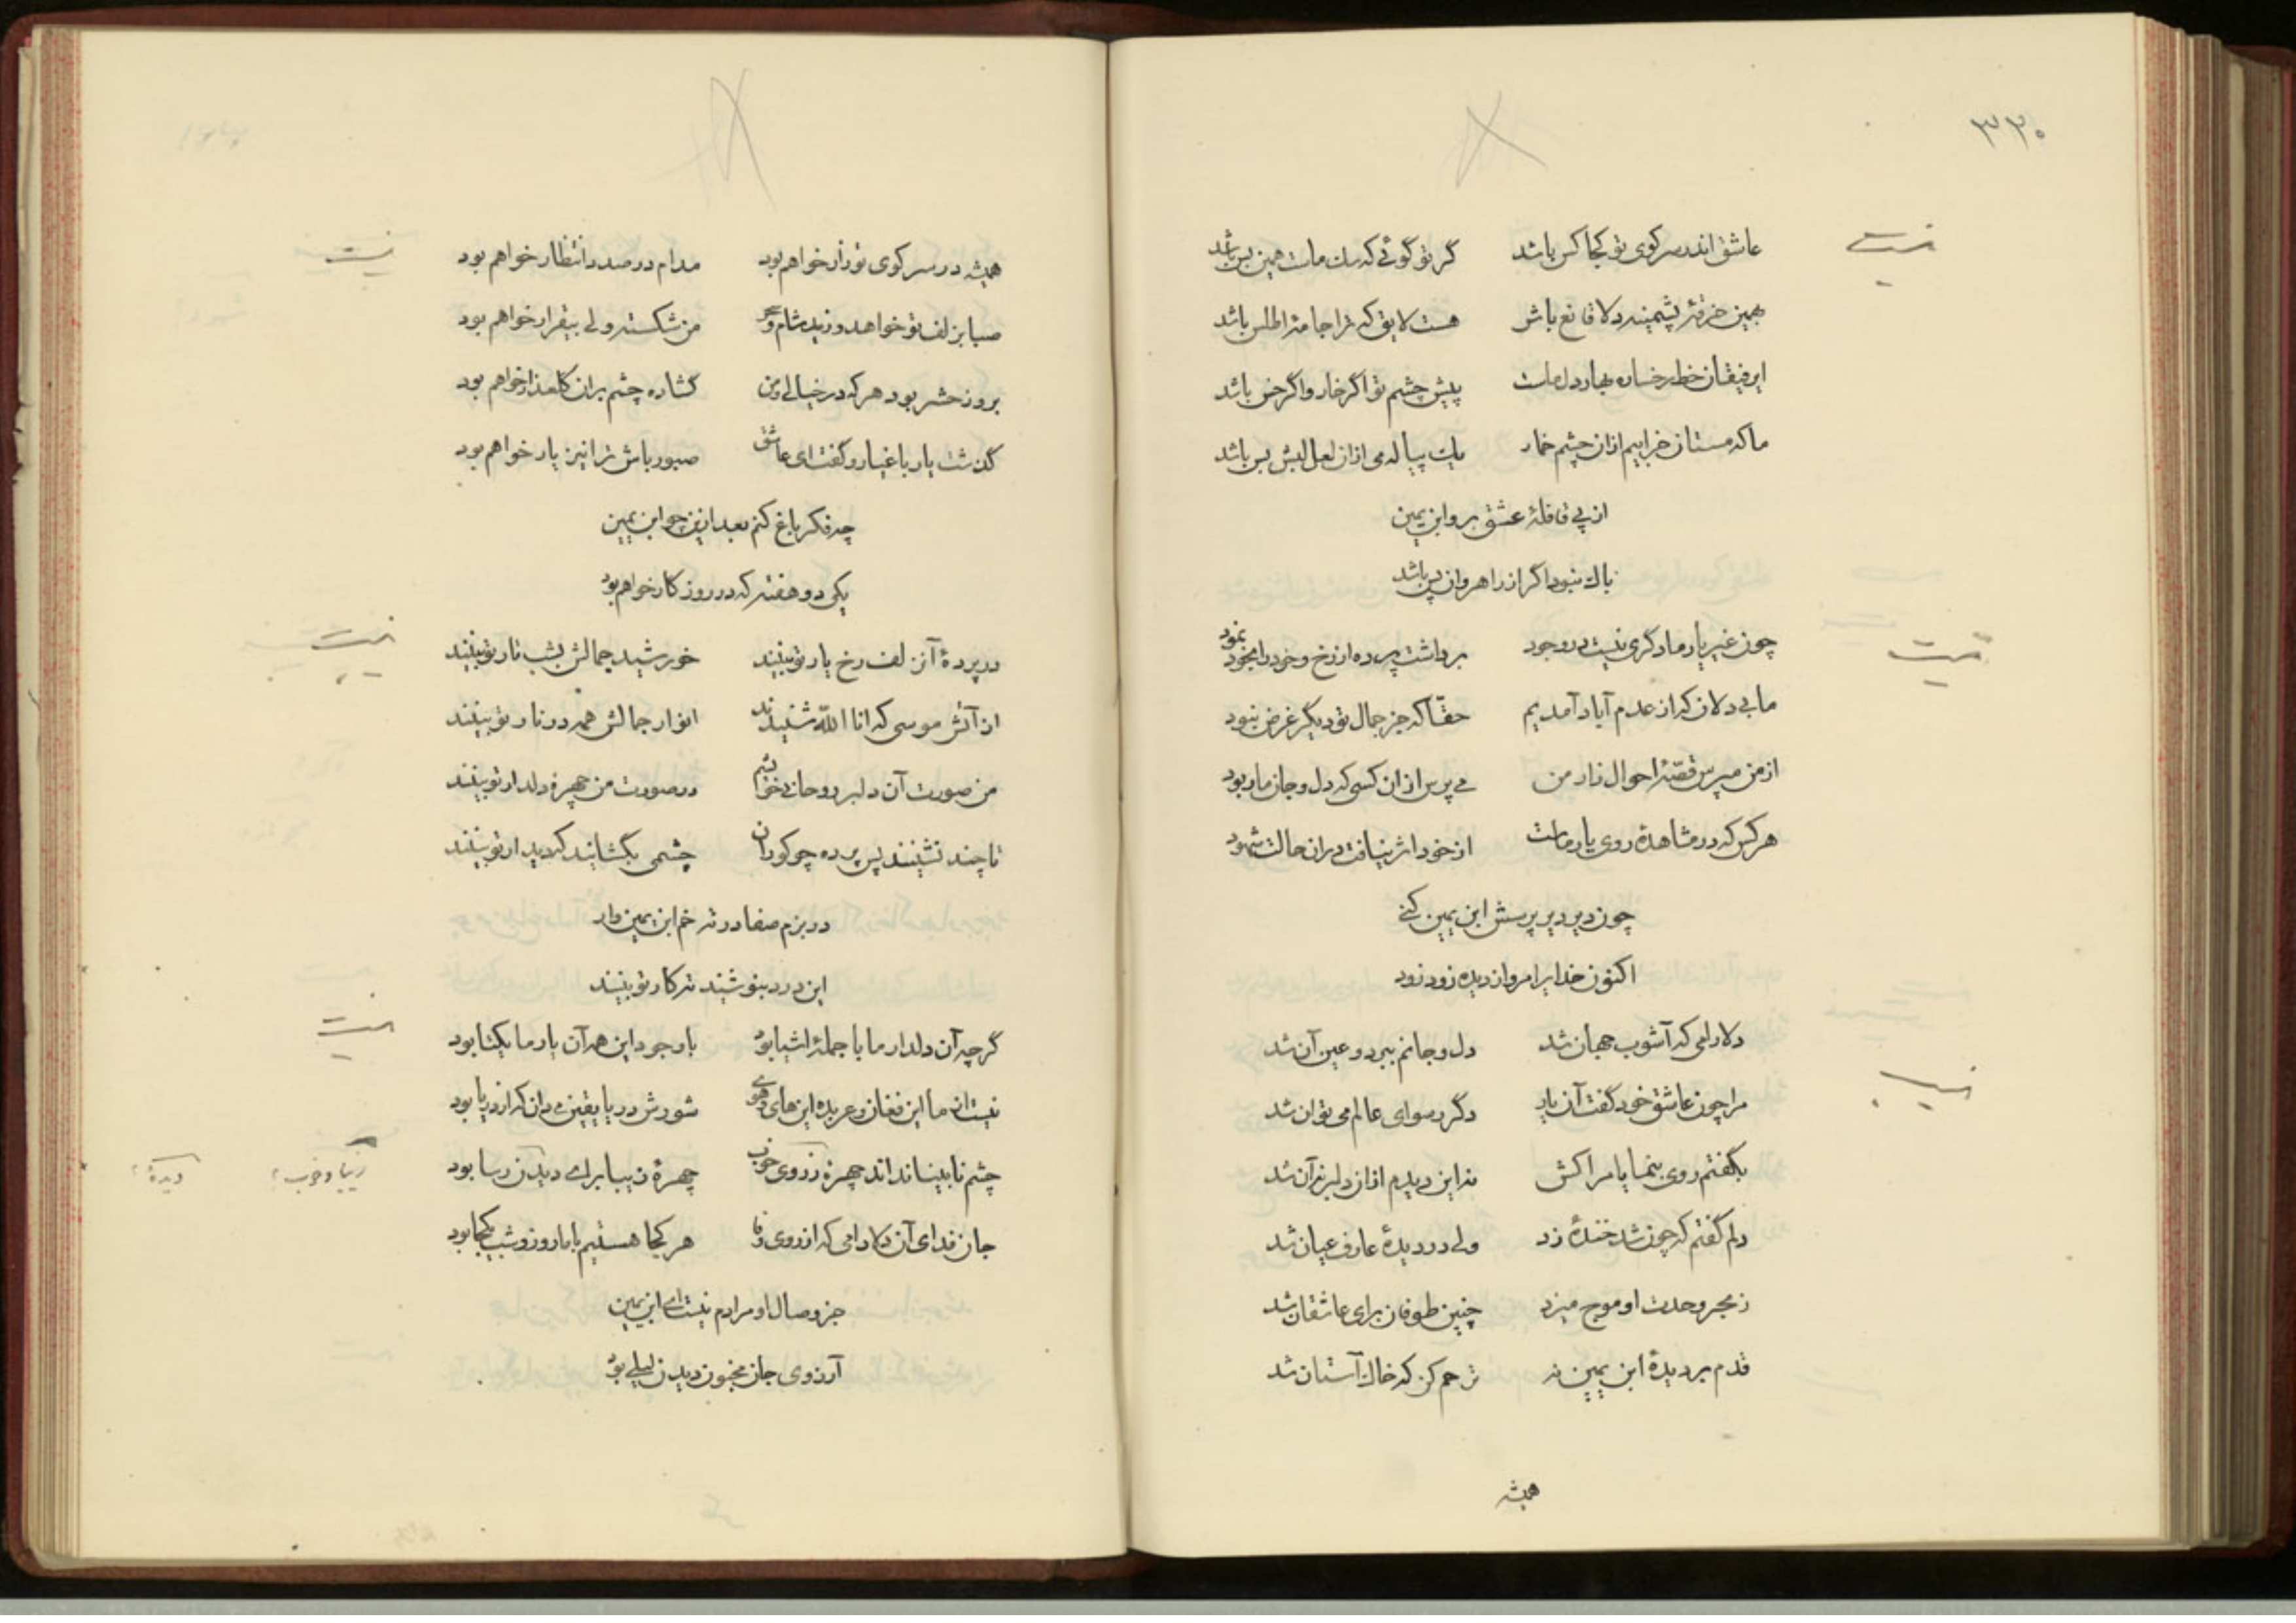 ۳۳۰
عاشق اندر سر کوی تو کجا کس باشد گر تو گوئی که سگ ماست همین بس باشد
بهمین خرقهٔ پشمینه دلا قانع باش هست لایق که ترا جامهٔ اطلس باشد
ای رفیقان خط رخساره بهار دل ماست پیش چشم تو اگر خار و اگر خس باشد
ما که مستان خرابیم ازان چشم خمار یک پیاله می ازان لعل لبش بس باشد
از پی قافلهٔ عشق برو ابن یمین
باک نبود اگر از راهروان پس باشد
چون غیر یار ما دگری نیست در وجود برداشت پرده از رخ و خود را بخود نمود
ما بی دلان که از عدم آباد آمدیم حقا که جز جمال تو دیگر غرض نبود
از من مپرس قصهٔ احوال زار من می پرس ازان کسی که دل و جان ما ربود
هر کس که در مشاهدهٔ روی یار ماست از خود اثر نیافت دران حالت شهود
چون دیر دیر پرسش ابن یمین کنی
اکنون خدایرا مرو از دیده زود زود
دلارامی که آشوب جهان شد دل و جانم ببرد و عین آن شد
مرا چون عاشق خود گفت آن یار دگر رسوای عالم می توان شد
بگفتم روی بنما یا مرا کش نه این دیدم ازان دلبر نه آن شد
دلم گفتم که چون شد خندهٔ زد ولی در دیدهٔ عارف عیان شد
ز بحر وحدت او موج میزد چنین طوفان برای عاشقان شد
قدم بر دیدهٔ ابن یمین نه ترحم کن که خاک آستان شد
همیشه
همیشه در سر کوی تو زار خواهم بود مدام در صدد انتظار خواهم بود
صبا بزلف تو خواهد وزید شام و سحر من شکسته ولی بیقرار خواهم بود
بروز حشر بود هر که در خیالی و من گشاده چشم بران گلعذار خواهم بود
گذشت یار با غیار و گفت ای عاشق صبور باش ترا نیز یار خواهم بود
چه فکر باغ کنم بعد ازین چو ابن یمین
یکی دو هفته که در روزگار خواهم بود
در پردهٔ آن زلف رخ یار تو بینند خورشید جمالش بشب تار تو بینند
از آتش موسی که انا الله شنیدند انوار جمالش همه در نار تو بینند
من صورت آن دلبر روحانی خوانم در صورت من چهرهٔ دلدار تو بینند
تا چند نشینند پس پرده چو کوران چشمی بگشایند که دیدار تو بینند
در بزم صفا درته خم ابن یمین وار
این درد بنوشند نه کار تو بینند
گر چه آن دلدار ما با جملهٔ اشیا بود با وجود این همه آن یار ما یکتا بود
نیست از ما این فغان و عربده این های و هوی شورش دریا یقین میدان که از دریا بود
چشم نابینا نداند چهره ز روی خوب چهرهٔ زیبا برای دیدن زسا بود
زیبا و خوب؛ دیدهٔ؛
جان فدای آن دلارامی که از روی وفا هر کجا هستیم با ما روز و شب یکجا بود
جز وصال او مرادم نیست ای ابن یمین
آرزوی جان مجنون دیدن لیلی بود